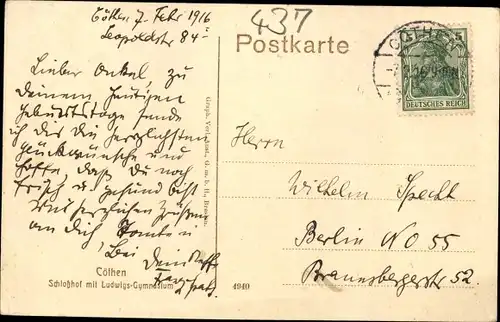 Cöthen 7. Febr 1916
Leopoldstr 84 I
437
Postkarte
CÖTHEN
5
DEUTSCHES REICH
Lieber Onkel, zu
Deinem heutigen
Geburtstage sende
ich dir die herzlichsten
Glückwünsche und
hoffe, dass du noch
frisch u. gesund bist
Mit herzlichen Grüßen
an Dich Tante u
Dein Neffe
Cöthen
Schloßhof mit Ludwigs-Gymnasium
Graph. Verl.-Anst., G. m. b. H., Breslau.
4940
Herrn
Wilhelm Specht
Berlin NO 55
Braunsbergerstr 52.